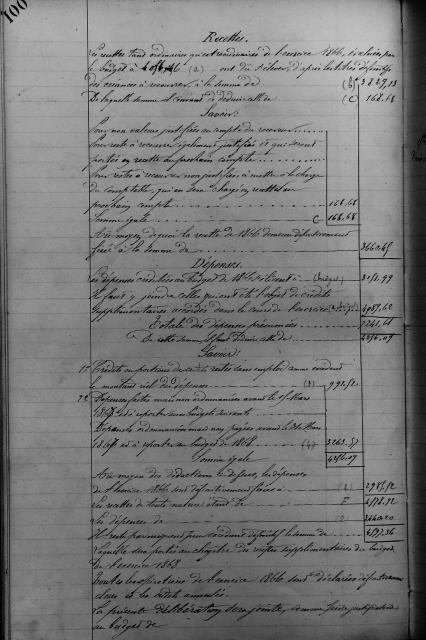 100
Recettes.
Les recettes tant ordinaires qu'extraordinaires de l'exercice 1866, évaluées par
le budget à (a) ont dû s'élever, d'après les titres définitifs
des créances à recouvrer, à la somme de (b) 3829,13
De laquelle somme il convient de déduire celle de (C 168,68
Savoir:
Pour non valeurs justifiées au compte du receveur......
Pour reste à recouvrer également justifiés et qui seront
portés en recette au prochain compte..........
Pour reste à recouvrer non justifiés, à mettre à la charge
du comptable, qui en sera chargé en recette au
prochain compte........ 168,68
Somme égale C 168,68
Au moyen de quoi la recette de 1866 demeure définitivement
fixée à la somme de 3660,45
Dépenses.
Les dépenses créditées au budget de 1866 s'élèvent à (budget) 3151,99
Il faut y joindre celles qui ont été l'objet de crédits
supplémentaires accordés dans le cours de l'exercice
Totale des dépenses présumées 7241,61
De cette somme il faut déduire celle de 4256,09
Savoir:
1° Crédits ou portions de crédits restés sans emploi comme excédant
le montant réel des dépenses (3) 992,52
2° Dépenses faites mais non ordonnancées avant le 15 Mars
1867 et à reporter aux budgets suivants
Dépenses ordonnancées mais non payées avant le 31 Mars
1867 et à reporter au budget de 1868 (4) 3263,57
Somme égale 4256,09
Au moyen des déductions ci-dessus, les dépenses
de l'exercice 1866 sont définitivement fixées à (2) 2985,52
Les recettes de toute nature étant de E
Les dépenses de
Il reste par conséquent pour excédent définitif la somme de
Laquelle sera portée au chapitre des recettes supplémentaires du budget
de l'exercice 1868
Toutes les opérations de l'exercice 1866 sont déclarées définitivement
closes et les crédits annulés.
La présente délibération sera jointe, comme pièce justificative
au budget de